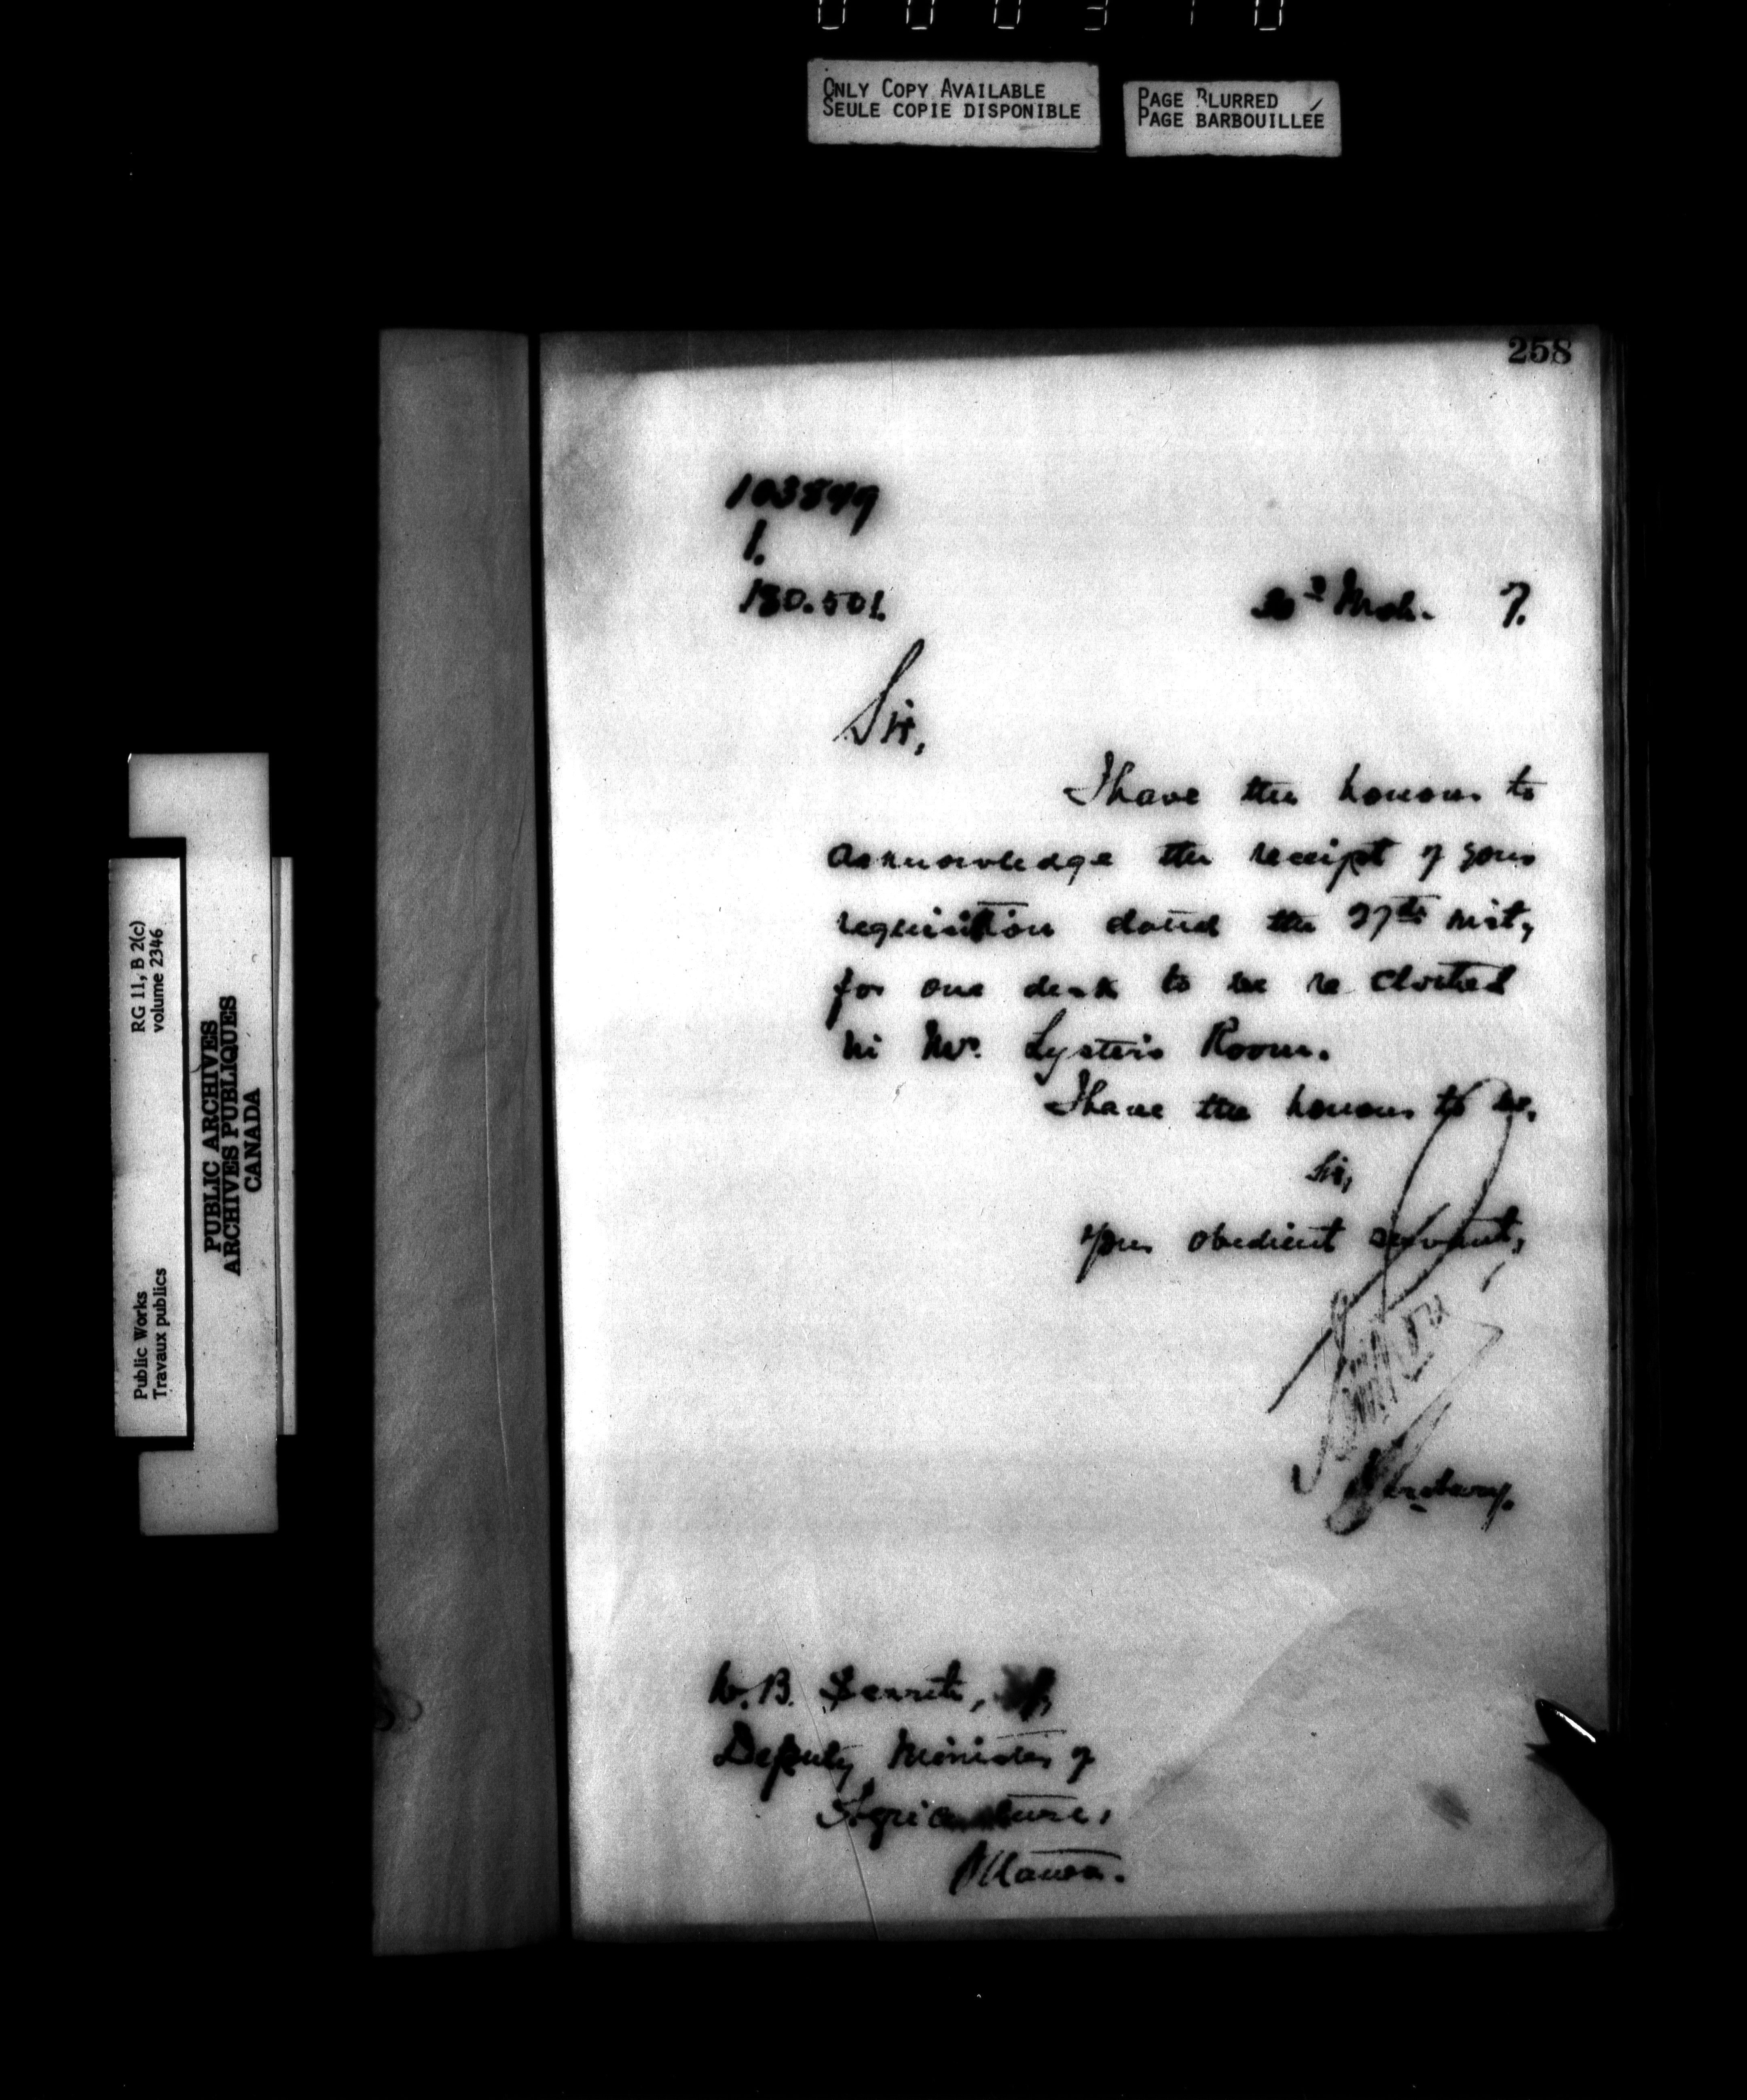 ONLY COPY AVAILABLE
SEULE COPIE DISPONIBLE
PAGE BLURRED
PAGE BARBOUILLÉE
258
103849
1.
180.501.
Mch. 7.
Sir,
I have the honour to
acknowledge the receipt of your
requisition dated the 27th inst,
for one desk to be re clothed
in Mr. Lyster's Room.
I have the honour to be,
Sir,
Your obedient servant,
Secretary.
W. B. Scarth,
Deputy Minister of
Agriculture,
Ottawa.
RG 11, B 2(c)
volume 2346
Public Works
Travaux publics
PUBLIC ARCHIVES
ARCHIVES PUBLIQUES
CANADA